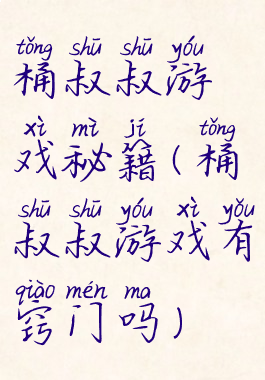 tǒng shū shū yóu
桶叔叔游
xì mì jí tǒng
戏秘籍(桶
shū shū yóu xì yǒu
叔叔游戏有
qiào mén ma
窍门吗)